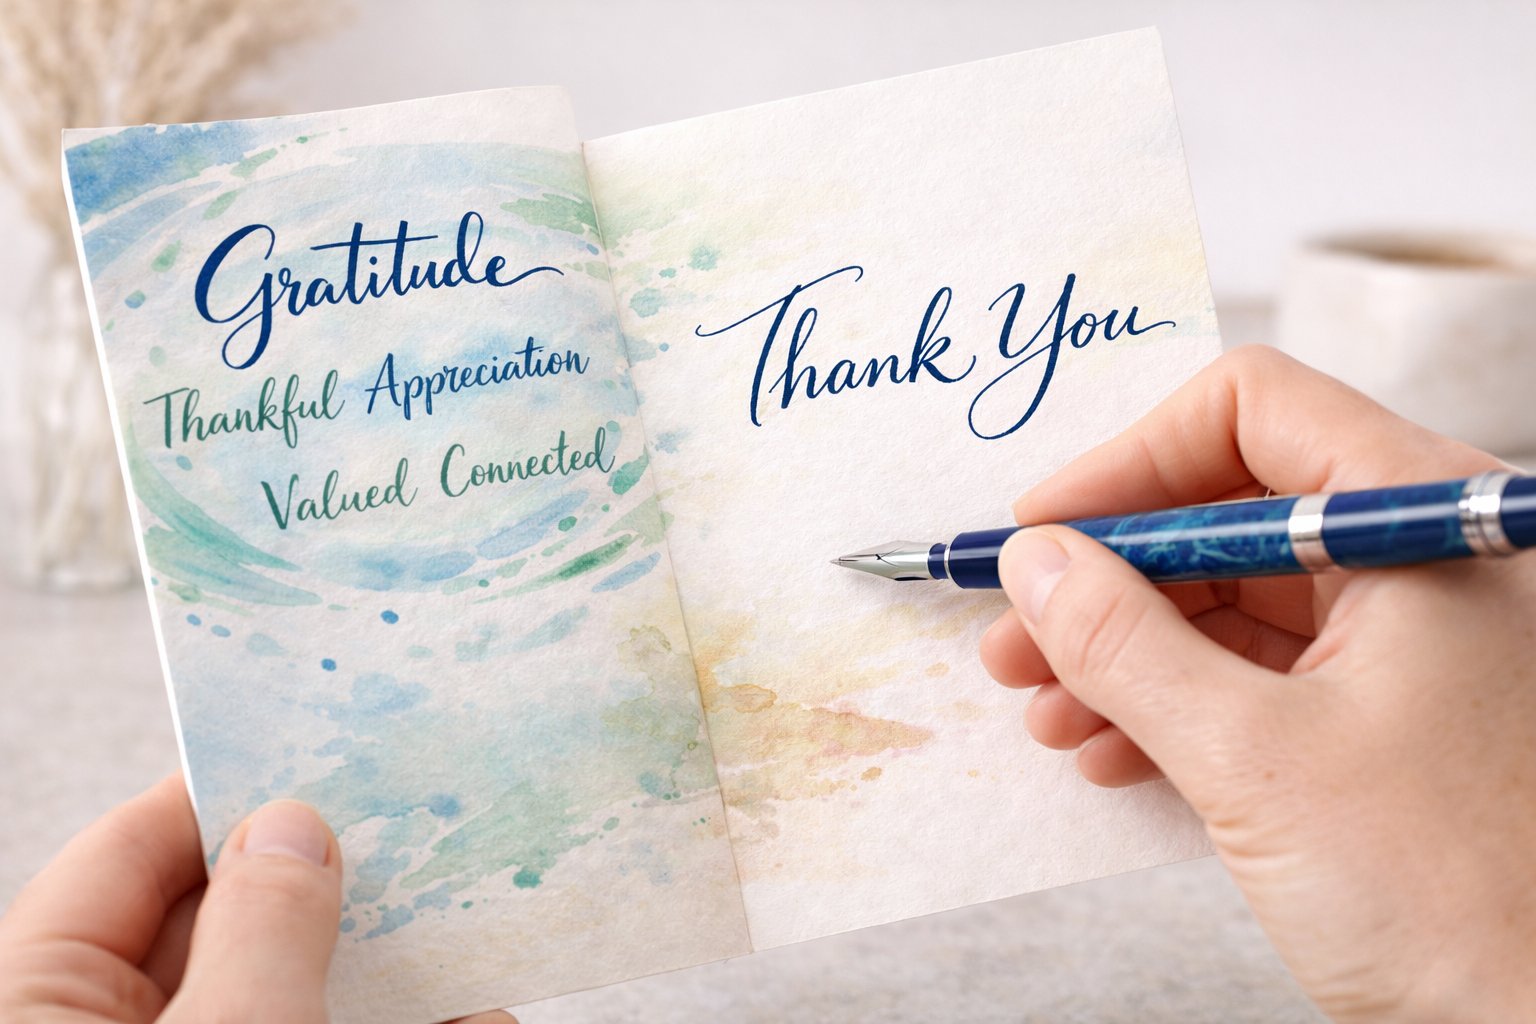 Gratitude
Thankful Appreciation
Valued Connected
Thank You